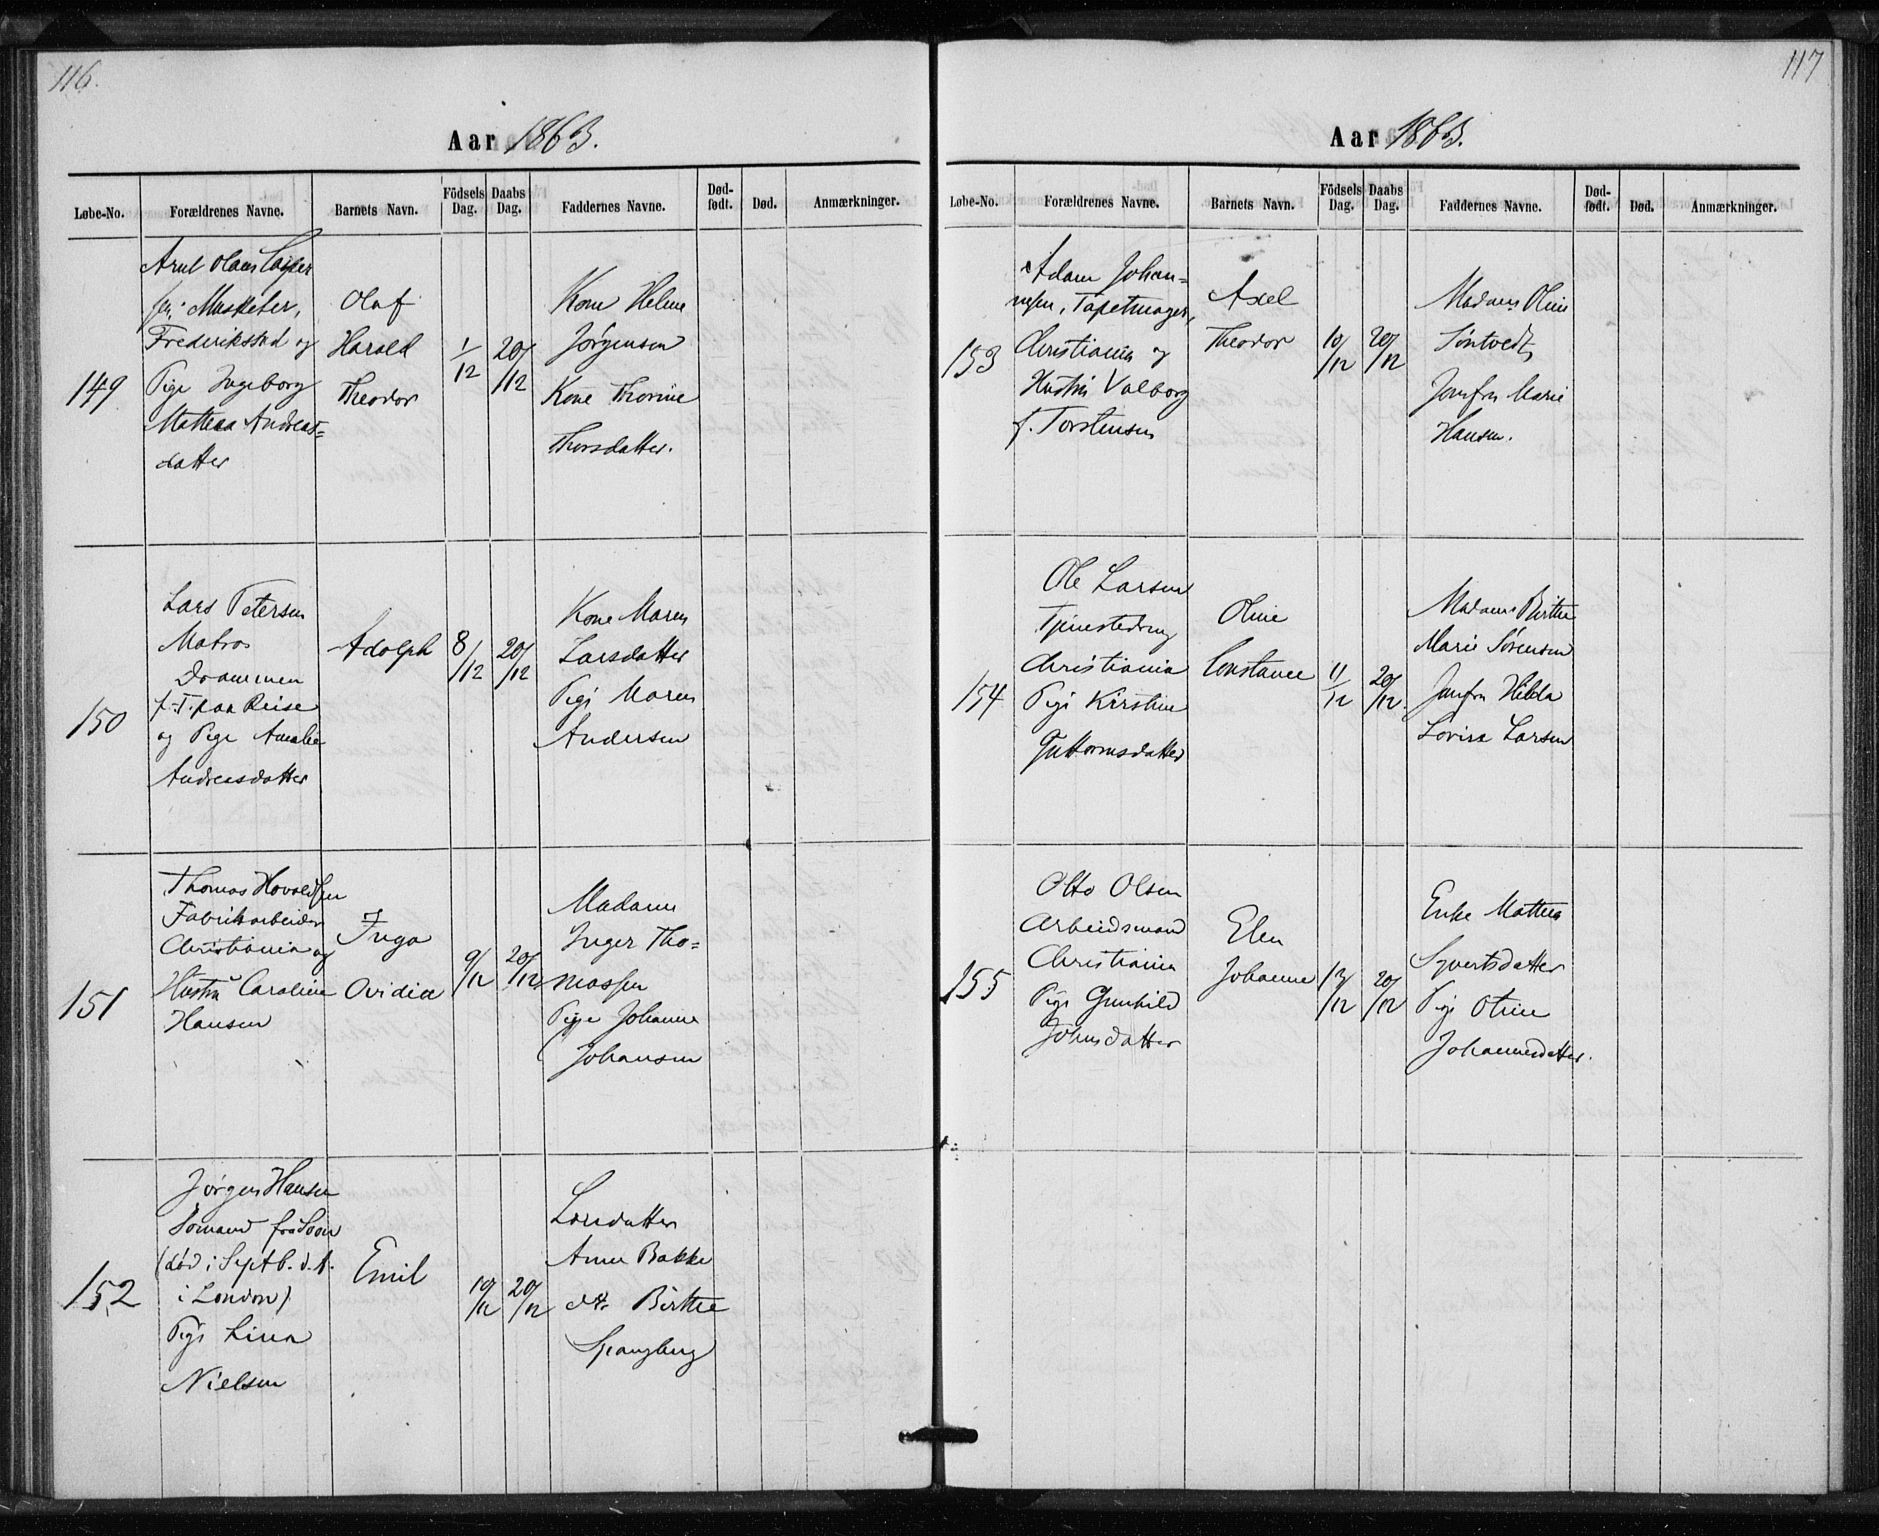 116.
Aar 1863.
Løbe-No.
Forældrenes Navne.
Barnets Navn.
Födsels Dag.
Daabs Dag.
Faddernes Navne.
Død-födt.
Død.
Anmærkninger.
149
Arnt Olaus
Musketer,
Frederikstad og
Pige Ingeborg
Mathea Andreas=
datter
Olaf
Harald
Theodor
1/12
20/12
Kone Helene
Jørgensen
Kone Thorine
Thorsdatter.
150
Lars Petersen
Matros
Drammen
f. T. paa Reise
og Pige Amalie
Andreasdatter
Adolph
8/12
20/12
Kone Maren
Larsdatter
Pige Maren
Andersen
151
Thomas Hovaldsen
Fabrikarbeider
Christiania og
Hustru Caroline
Hansen
Inga
Ovidia
9/12
20/12
Madame
Inger Tho=
massen
Pige Johanne
Johansen
152
Jørgen Hansen
Sømand fra
(død i Septb. d. A.
i London)
Pige Lina
Nielsen
Emil
20/12
Anne Bakke
do. Birthe
Spangberg
117
Aar 1863.
Løbe-No.
Forældrenes Navne.
Barnets Navn.
Födsels Dag.
Daabs Dag.
Faddernes Navne.
Død-födt.
Død.
Anmærkninger.
153
Adam Johan=
nesen, Tapetmager,
Christiania og
Hustru Valborg
f. Torstensen
Axel
Theodor
10/12
20/12
Madam Oline
Søntvedt
Jomfru Marie
Hansen.
154
Ole Larsen
Tjenestedreng
Christiania
Pige Kirstine
Guttormsdatter
Oline
Constance
11/12
20/12.
Madame Birthe
Marie Sørensen
Jomfru Hilda
Lovise Larsen
155
Otto Olsen
Arbeidsmand
Christiania
Pige Gunhild
Johnsdatter
Elen
Johanne
13/12
20/12
Enke Mathea
Syvertsdatter
Pige Oline
Johannesdatter.